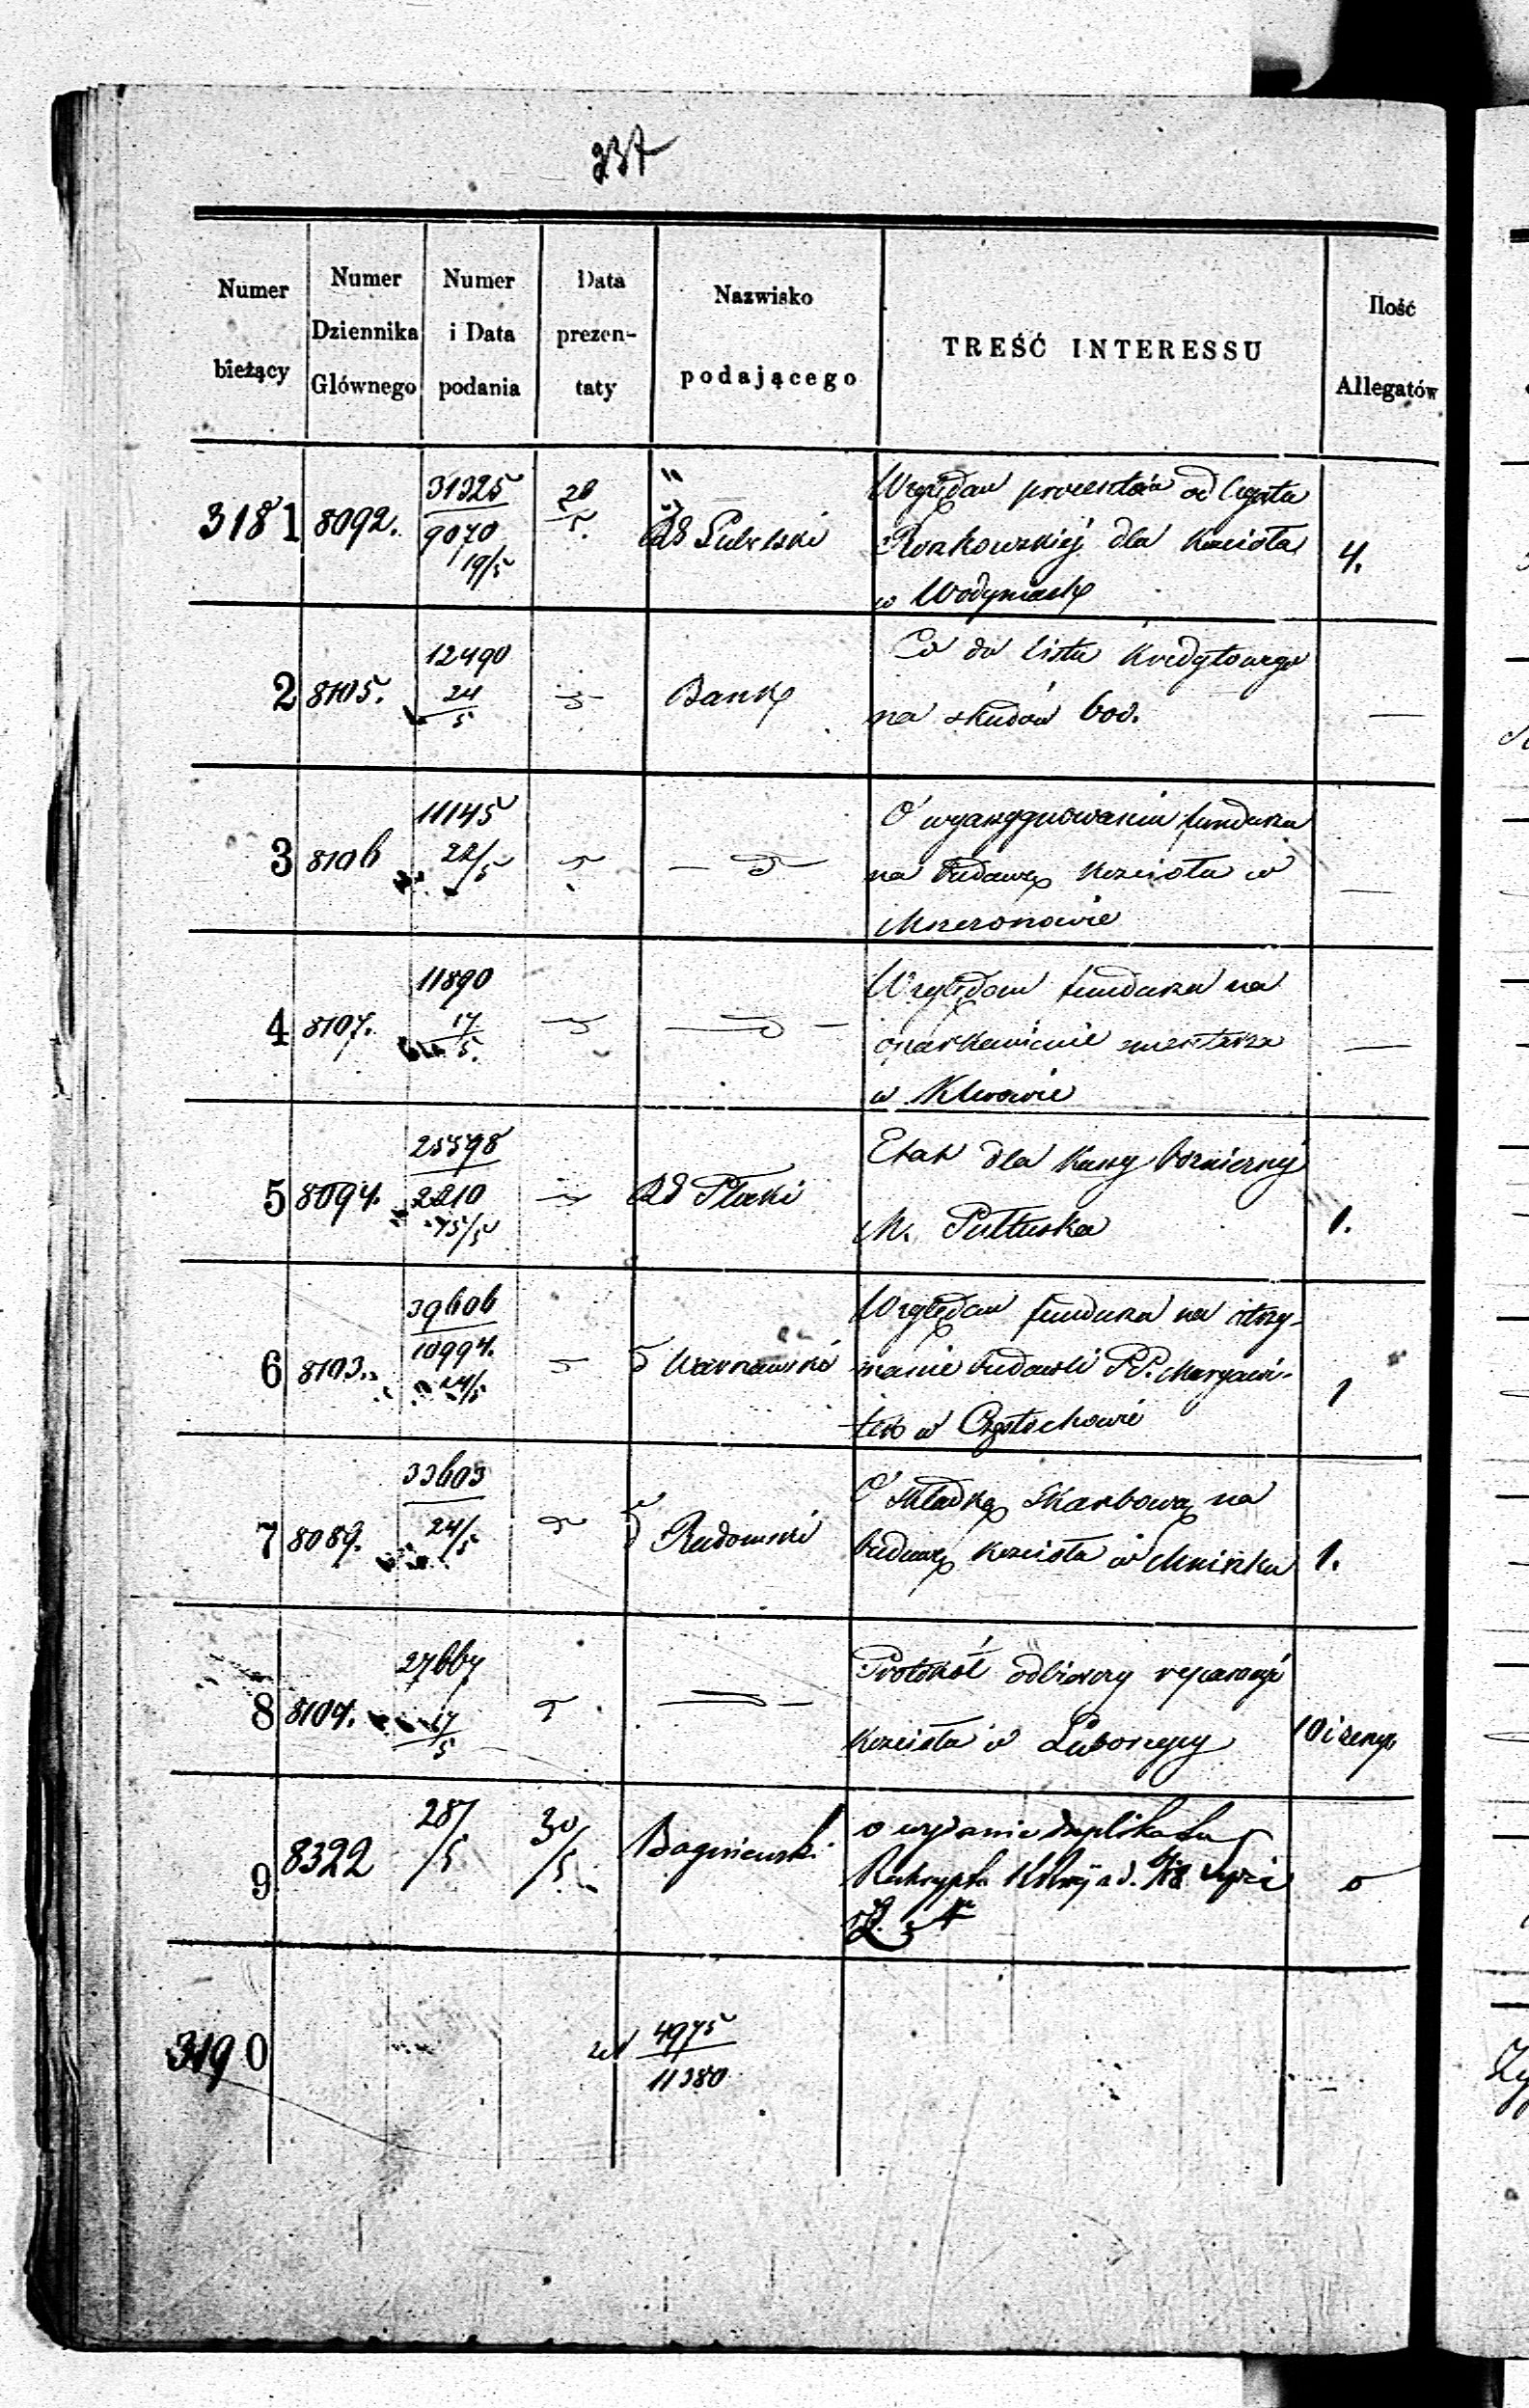 237
Numer bieżący
Numer Dziennika Głównego
Numer i Data podania
Data prezentaty
Nazwisko podającego
TREŚĆ INTERESSU
Ilość Allegatów
3181 8092. 31325 9070 19/5 28/5. Rd Lubelski
Względem procentów od legatu
dla Kościoła
w Wodyniach
4.
2 8105. 12490 24/5 Bank
Co do listu Kredytowego
na skudów 600. —
3 8106 11145 22/5
O wyasygnowaniu funduszu
na budowę Kościoła w
Mszczonowie —
4 8107. 11890 17/5.
Względem funduszu na
oparkanienie cmentarza
w Klwowie —
5 8094. 25598 2210 15/5 Rd Płocki
Etat dla Kassy bożniczej
M. Pułtuska 1.
6 8103. 39606 10994. 24/5 Warszawski
Względem funduszu na utrzy-
manie budowli PP. Maryawi-
tek w Częstochowie
1
7 8089. 33603 24/5 Radomski
O składkę Skarbową na
budowę Kościoła w Mninku 1.
8 8104. 27667 17/5
Protokół odbiorczy reparacyi
Kościoła w Luborzycy 10 i zeszyt
9 8322 28/5 30/5 Baginiewski
o wydanie duplikatu
0
3190 4975
11380